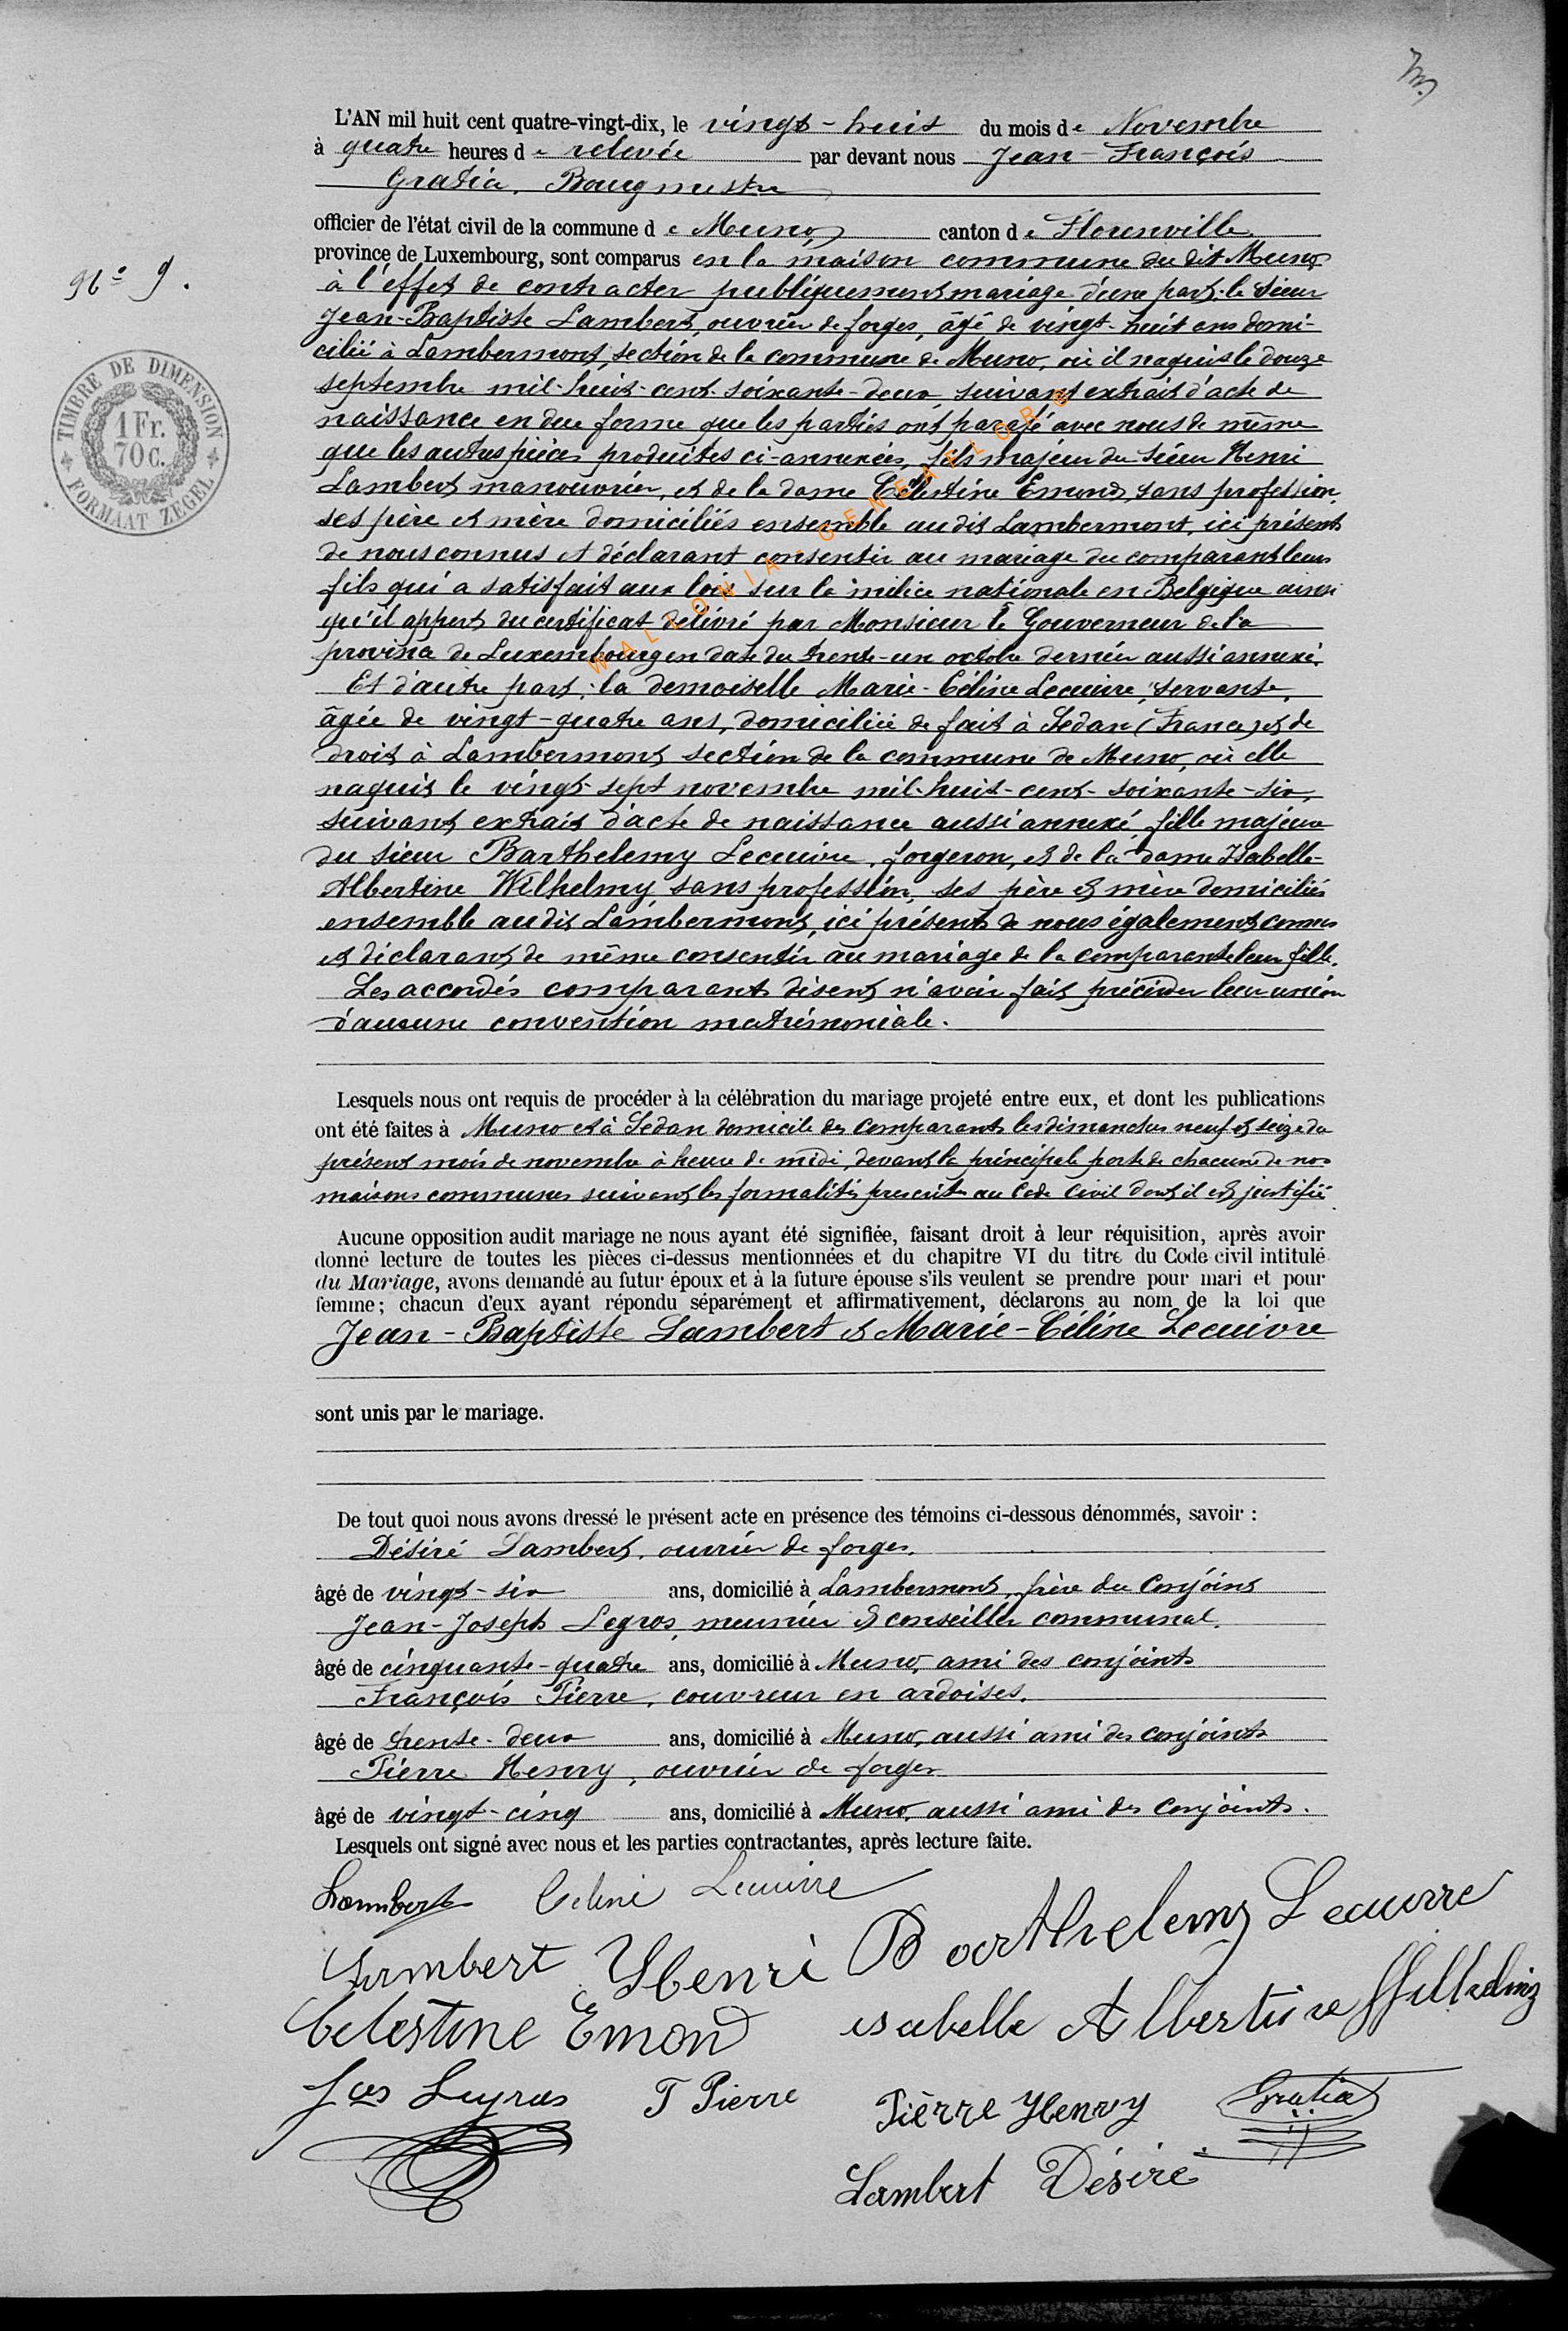 L'AN mil huit cent quatre-vingt-dix, le vingt-huit du mois de Novembre
à quatre heures de relevée par devant nous Jean-François
Gratia, Bourgmestre
officier de l'état civil de la commune de Muno, canton de Florenville
province de Luxembourg, sont comparus en la maison commune du dit Muno
à l'effet de contracter publiquement mariage d'une part: le Sieur
Jean-Baptiste Lambert, ouvrier de forges, âgé de vingt-huit ans domi-
cilié à Lambermont, section de la commune de Muno, où il naquit le douze
septembre mil-huit-cent-soixante-deux, suivant extrait d'acte de
naissance en due forme que les parties ont parafé avec nous de même
que les autres pièces produites ci-annexées, fils majeur du Sieur Henri
Lambert manouvrier, et de la dame Célestine Emond, sans profession,
ses père et mère domiciliés ensemble audit Lambermont, ici présents
de nous connus et déclarant consentir au mariage du comparant leur
fils qui a satisfait aux lois sur la milice nationale en Belgique ainsi
qu'il appert du certificat délivré par Monsieur le Gouverneur de la
province de Luxembourg en date du trente-un octobre dernier aussi annexé.
Et d'autre part: la demoiselle Marie-Céline Lecuivre, servante,
âgée de vingt-quatre ans, domiciliée de fait à Sedan (France) et de
droit à Lambermont section de la commune de Muno, où elle
naquit le vingt-sept novembre mil-huit-cent-soixante-six,
suivant extrait d'acte de naissance aussi annexé, fille majeure
du sieur Barthelemy Lecuivre, forgeron, et de la dame Isabelle-
Albertine Wilhelmy, sans profession, ses père et mère domiciliés
ensemble audit Lambermont, ici présents de nous également connus
et déclarant de même consentir au mariage de la comparante leur fille.
Les accordés comparants disent n'avoir fait précéder leur union
d'aucune convention matrimoniale.
N° 9.
TIMBRE DE DIMENSION
1 Fr.
70 C.
FORMAAT ZEGEL
WALLONIA-GENEAFLOBE
Lesquels nous ont requis de procéder à la célébration du mariage projeté entre eux, et dont les publications
ont été faites à Muno et à Sedan domicile des comparants les dimanches neuf et seize du
présent mois de novembre à heure de midi, devant la principale porte de chacune de nos
maisons communes suivant les formalités prescrites au Code Civil dont il est justifié.
Aucune opposition audit mariage ne nous ayant été signifiée, faisant droit à leur réquisition, après avoir
donné lecture de toutes les pièces ci-dessus mentionnées et du chapitre VI du titre du Code civil intitulé
du Mariage, avons demandé au futur époux et à la future épouse s'ils veulent se prendre pour mari et pour
femme; chacun d'eux ayant répondu séparément et affirmativement, déclarons au nom de la loi que
Jean-Baptiste Lambert et Marie-Céline Lecuivre
sont unis par le mariage.
De tout quoi nous avons dressé le présent acte en présence des témoins ci-dessous dénommés, savoir :
Désiré Lambert, ouvrier de forges,
âgé de vingt-six ans, domicilié à Lambermont, frère du Conjoint
Jean-Joseph Legros, meunier et conseiller communal,
âgé de cinquante-quatre ans, domicilié à Muno, ami des conjoints
François Pierre, couvreur en ardoises,
âgé de trente-deux ans, domicilié à Muno, aussi ami des conjoints
Pierre Henry, ouvrier de forges
âgé de vingt-cinq ans, domicilié à Muno, aussi ami des conjoints.
Lesquels ont signé avec nous et les parties contractantes, après lecture faite.
Lambert Celine Lecuivre
Lambert Henri Barthelemy Lecuivre
Celestine Emond isabelle Albertine
T Pierre Pierre Henry Gratia
Lambert Désiré